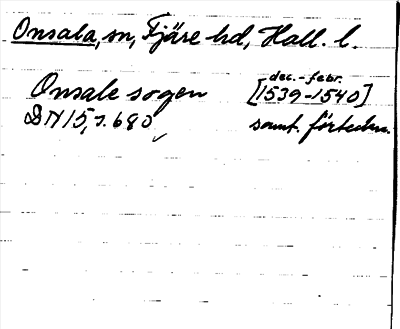 Onsala, sn, Fjäre hd, Hall. l.
dec. - febr.
Onsale sogen [1539-1540]
DN 15, s. 680 samt. förteckn.